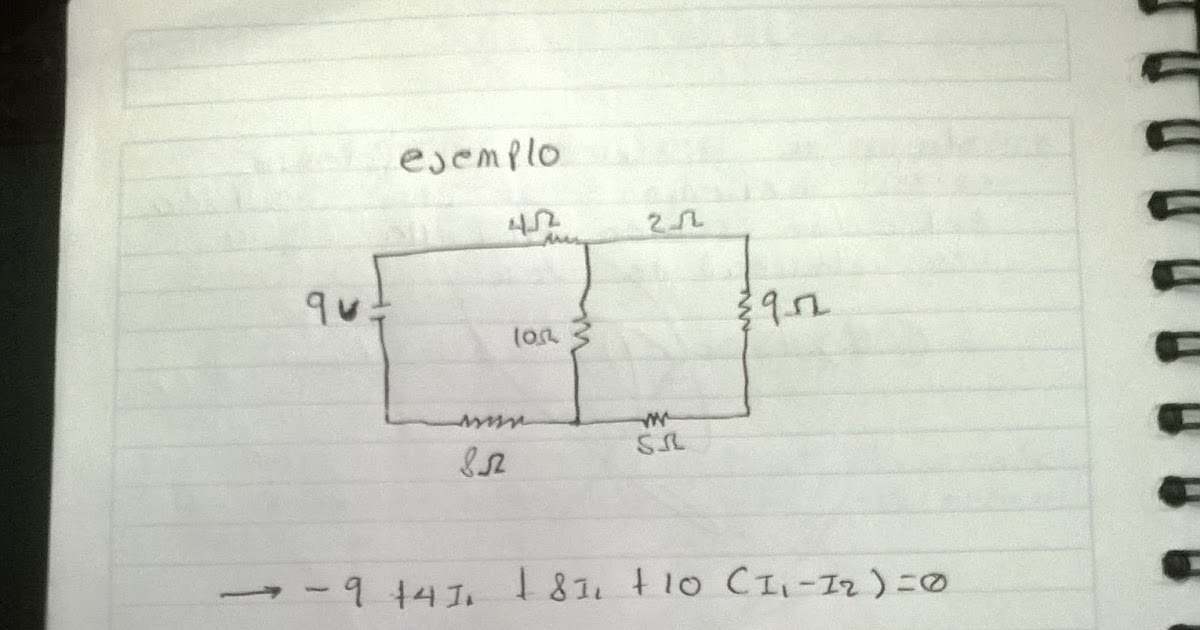 ejemplo
4Ω 2Ω
9v 9Ω
10Ω
5Ω
8Ω
→ -9 +4I₁ + 8I₁ + 10 (I₁-I₂)=0